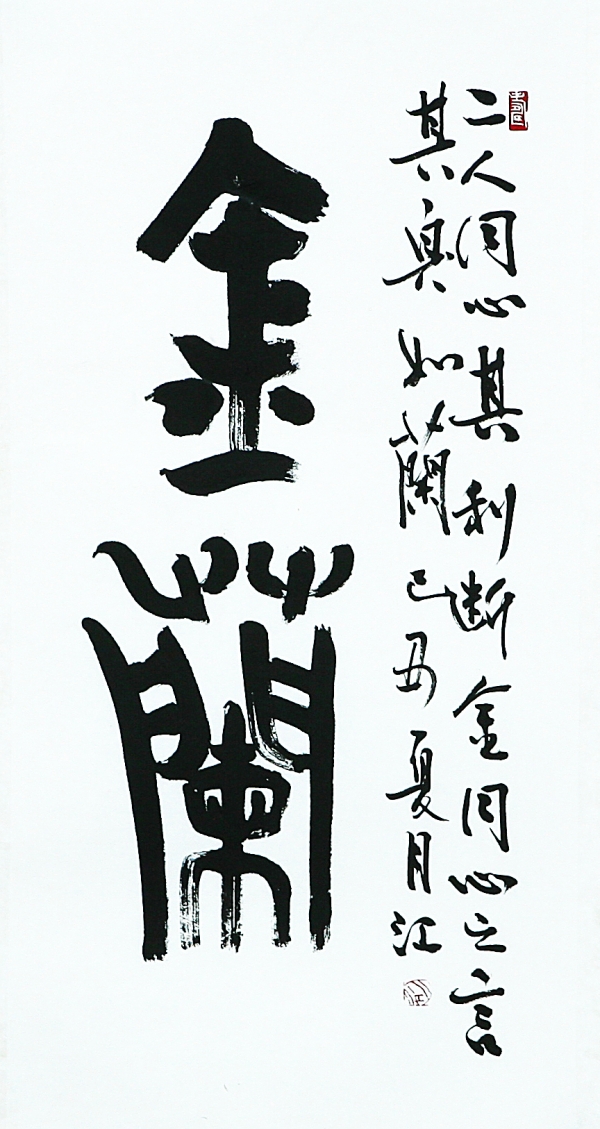 二人同心其利断金同心之言
其臭如蘭己丑夏月江
金蘭